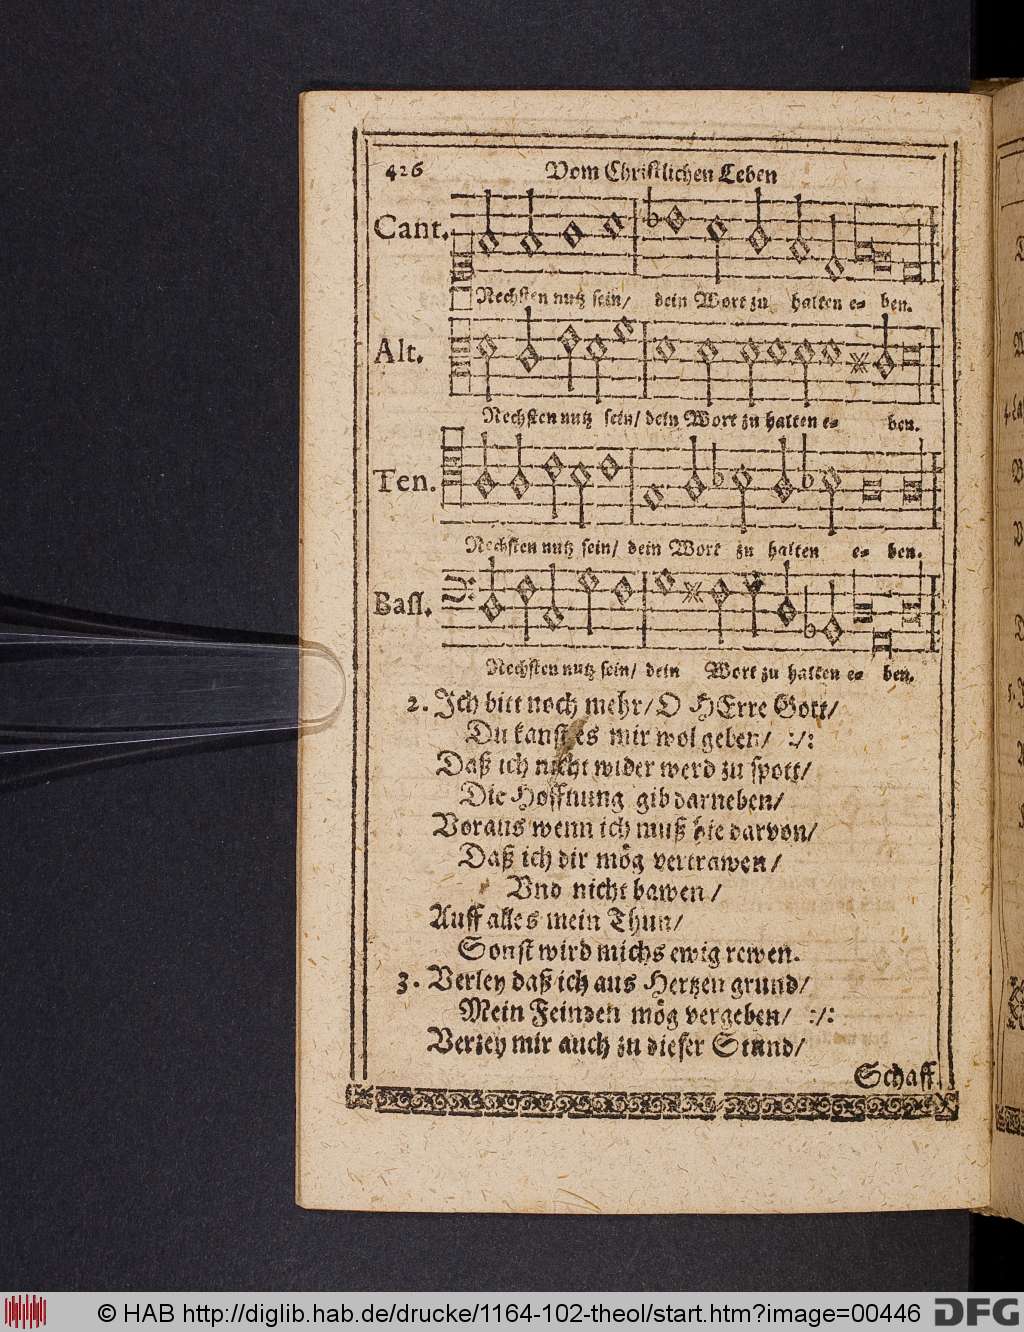 426 Vom Christlichen Leben
Cant.
Nechsten nutz sein/ dein Wort zu halten e- ben.
Alt.
Nechsten nutz sein/ dein Wort zu halten e- ben.
Ten.
Nechsten nutz sein/ dein Wort zu halten e- ben.
Bass.
Nechsten nutz sein/ dein Wort zu halten e- ben.
2. Ich bitt noch mehr/ O HErre Gott/
Du kanst es mir wol geben/ :/:
Daß ich nicht wider werd zu spott/
Die Hoffnung gib darneben/
Voraus wenn ich muß hie darvon/
Daß ich dir mög vertrawen/
Vnd nicht bawen/
Auff alles mein Thun/
Sonst wird michs ewig rewen.
3. Verley daß ich aus Hertzen grund/
Mein Feinden mög vergeben/ :/:
Verzey mir auch zu dieser Stund/
Schaff
© HAB http://diglib.hab.de/drucke/1164-102-theol/start.htm?image=00446 DFG